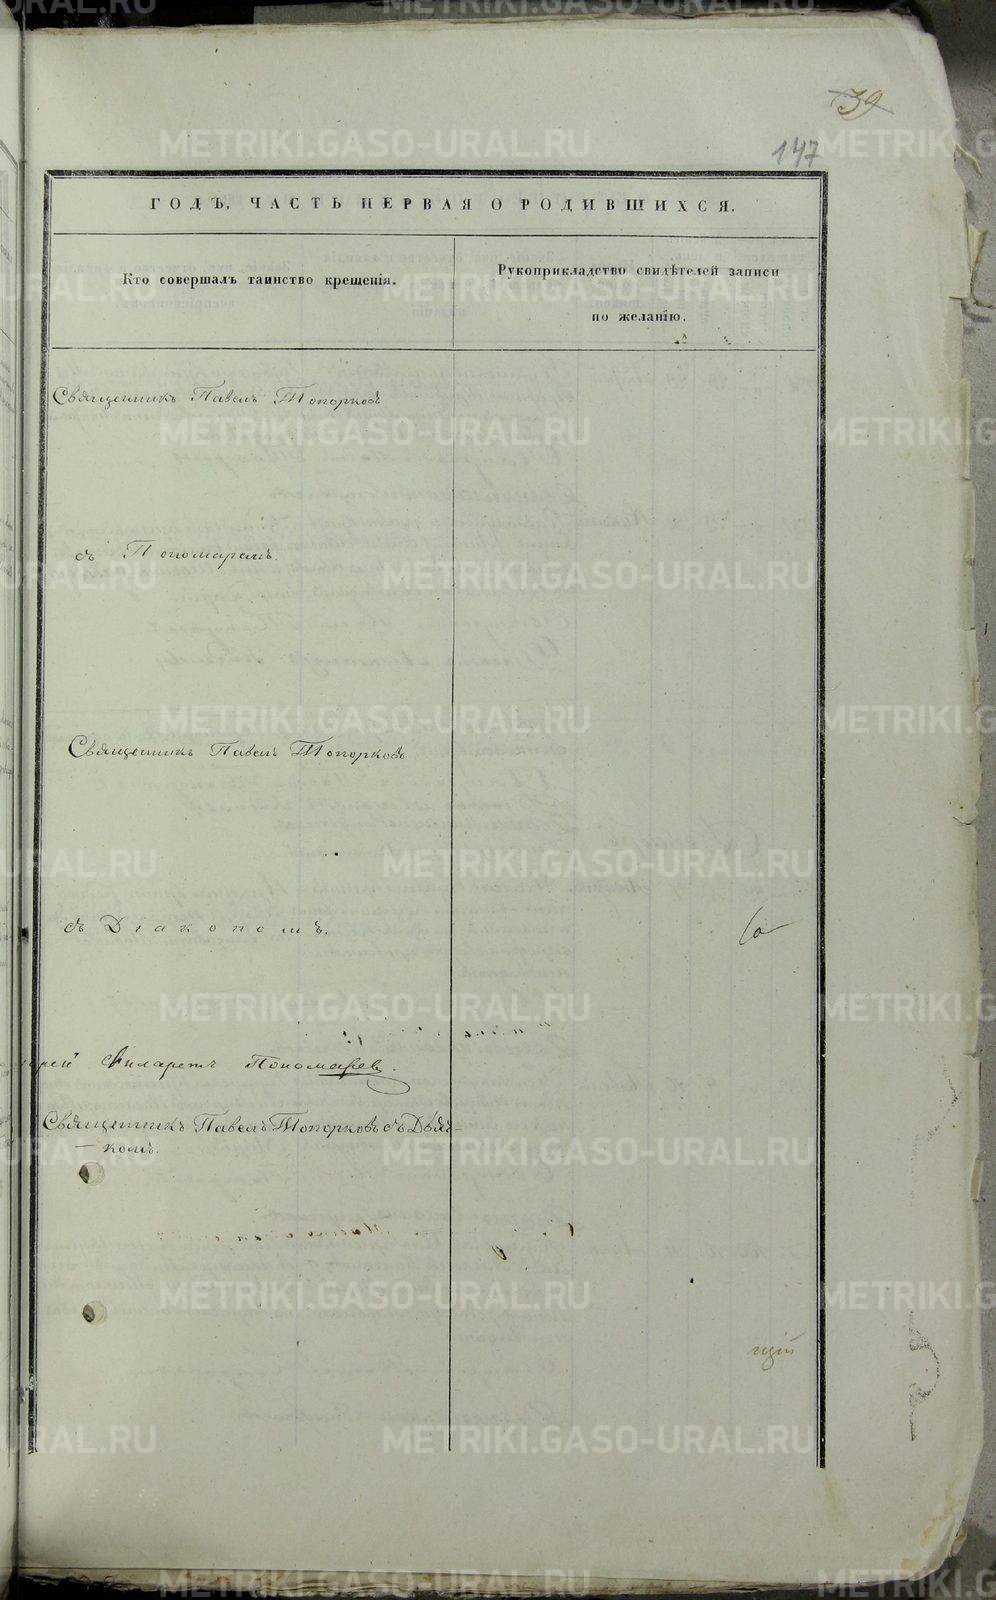 39
147
ГОДЪ, ЧАСТЬ ПЕРВАЯ О РОДИВШИХСЯ.
Кто совершалъ таинство крещенія.
Рукоприкладство свидѣтелей записи
по желанію.
Священникъ Павелъ Топорковъ
съ Пономаремъ.
Священникъ Павелъ Топорковъ
съ Діакономъ.
Филаретъ Пономаревъ.
Священникъ Павелъ Топорковъ съ Дья-
комъ.
щій
METRIKI.GASO-URAL.RU